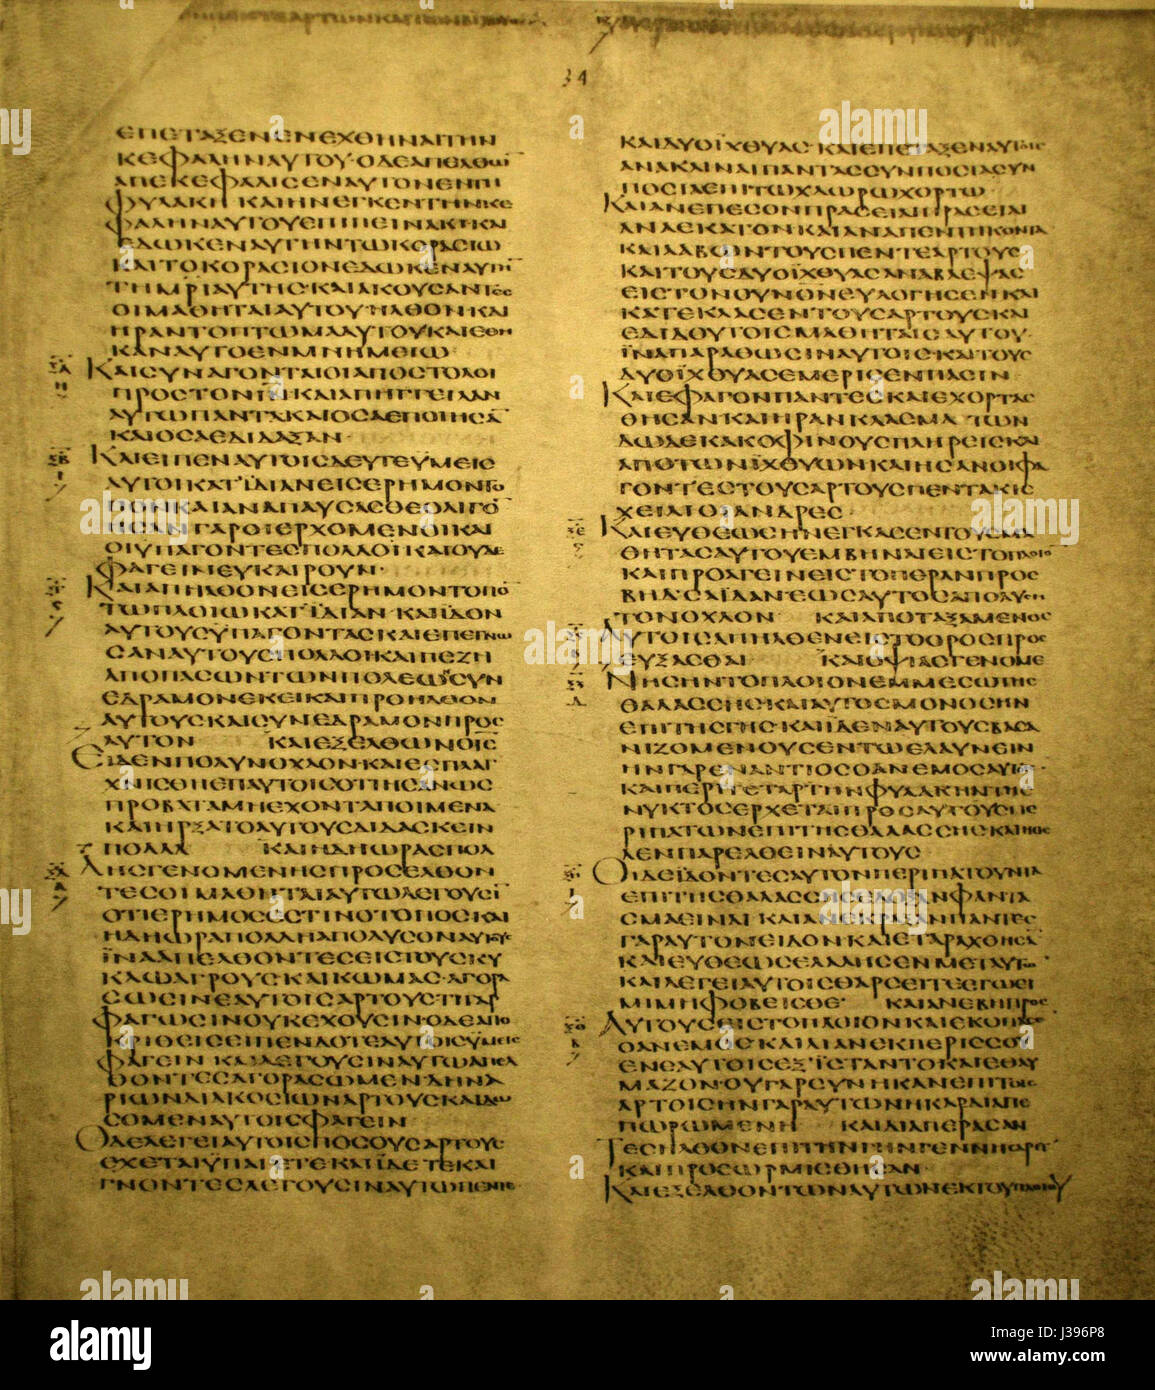 34
ΕΠΕΤΑΞΕΝΕΝΕΧΘΗΝΑΙΤΗΝ
ΚΕΦΑΛΗΝΑΥΤΟΥ·ΟΔΕΑΠΕΛΘΩ̅
ΑΠΕΚΕΦΑΛΙϹΕΝΑΥΤΟΝΕΝΤΗ
ΦΥΛΑΚΗ ΚΑΙΗΝΕΓΚΕΝΤΗΝΚΕ
ΦΑΛΗΝΑΥΤΟΥΕΠΙΠΙΝΑΚΙΚΑΙ
ΕΔΩΚΕΝΑΥΤΗΝΤΩΚΟΡΑϹΙΩ
ΚΑΙΤΟΚΟΡΑϹΙΟΝΕΔΩΚΕΝΑΥΤΗ̅
ΤΗΜΡΙΑΥΤΗϹ·ΚΑΙΑΚΟΥϹΑΝΤΕϹ
ΟΙΜΑΘΗΤΑΙΑΥΤΟΥ·ΗΛΘΟΝΚΑΙ
ΗΡΑΝΤΟΠΤΩΜΑΑΥΤΟΥΚΑΙΕΘΗ
ΚΑΝΑΥΤΟΕΝΜΝΗΜΕΙΩ·
ΚΑΙϹΥΝΑΓΟΝΤΑΙΟΙΑΠΟϹΤΟΛΟΙ
ΠΡΟϹΤΟΝΙΝ̅ΚΑΙΑΠΗΓΓΕΙΛΑΝ
ΑΥΤΩΠΑΝΤΑΚΑΙΟϹΑΕΠΟΙΗϹΑ̅
ΚΑΙΟϹΑΕΔΙΔΑΞΑΝ·
ΚΑΙΕΙΠΕΝΑΥΤΟΙϹΔΕΥΤΕΫΜΕΙϹ
ΑΥΤΟΙΚΑΤΪΔΙΑΝΕΙϹΕΡΗΜΟΝΤΟ
ΠΟΝΚΑΙΑΝΑΠΑΥϹΑϹΘΕΟΛΙΓΟ̅
ΗϹΑΝΓΑΡΟΙΕΡΧΟΜΕΝΟΙΚΑΙ
ΟΙΥΠΑΓΟΝΤΕϹΠΟΛΛΟΙΚΑΙΟΥΔΕ
ΦΑΓΕΙΝΕΥΚΑΙΡΟΥΝ·
ΚΑΙΑΠΗΛΘΟΝΕΙϹΕΡΗΜΟΝΤΟΠΟ̅
ΤΩΠΛΟΙΩΚΑΤΪΔΙΑΝ·ΚΑΙΪΔΟΝ
ΑΥΤΟΥϹΫΠΑΓΟΝΤΑϹΚΑΙΕΠΕΓΝΩ
ϹΑΝΑΥΤΟΥϹΠΟΛΛΟΙ·ΚΑΙΠΕΖΗ
ΑΠΟΠΑϹΩΝΤΩΝΠΟΛΕΩ̅ϹΥΝ
ΕΔΡΑΜΟΝΕΚΕΙΚΑΙΠΡΟΗΛΘΟΝ
ΑΥΤΟΥϹΚΑΙϹΥΝΕΔΡΑΜΟΝΠΡΟϹ
ΑΥΤΟΝ ΚΑΙΕΞΕΛΘΩΝΟΙϹ̅
ΕΙΔΕΝΠΟΛΥΝΟΧΛΟΝ·ΚΑΙΕϹΠΛΑΓ
ΧΝΙϹΘΗΕΠΑΥΤΟΙϹΟΤΙΗϹΑΝΩϹ
ΠΡΟΒΑΤΑΜΗΕΧΟΝΤΑΠΟΙΜΕΝΑ
ΚΑΙΗΡΞΑΤΟΑΥΤΟΥϹΔΙΔΑϹΚΕΙΝ
ΠΟΛΛΑ ΚΑΙΗΔΗΩΡΑϹΠΟΛ
ΛΗϹΓΕΝΟΜΕΝΗϹΠΡΟϹΕΛΘΟΝ
ΤΕϹΟΙΜΑΘΗΤΑΙΑΥΤΩΛΕΓΟΥϹΙ̅
ΟΤΙΕΡΗΜΟϹΕϹΤΙΝΟΤΟΠΟϹΚΑΙ
ΗΔΗΩΡΑΠΟΛΛΗΑΠΟΛΥϹΟΝΑΥΤΟΥϹ
ΪΝΑΑΠΕΛΘΟΝΤΕϹΕΙϹΤΟΥϹΚΥ
ΚΛΩΑΓΡΟΥϹΚΑΙΚΩΜΑϹ·ΑΓΟΡΑ
ϹΩϹΙΝΕΑΥΤΟΙϹΑΡΤΟΥϹΤΙΓΑΡ
ΦΑΓΩϹΙΝΟΥΚΕΧΟΥϹΙΝ·ΟΔΕΑΠΟ
ΚΡΙΘΕΙϹΕΙΠΕΝΔΟΤΕΑΥΤΟΙϹΫΜΕΙϹ
ΦΑΓΕΙΝ ΚΑΙΛΕΓΟΥϹΙΝΑΥΤΩΑΠΕΛ
ΘΟΝΤΕϹΑΓΟΡΑϹΩΜΕΝΔΗΝΑ
ΡΙΩΝΔΙΑΚΟϹΙΩΝΑΡΤΟΥϹΚΑΙΔΩ
ϹΟΜΕΝΑΥΤΟΙϹΦΑΓΕΙΝ
ΟΔΕΛΕΓΕΙΑΥΤΟΙϹΠΟϹΟΥϹΑΡΤΟΥϹ
ΕΧΕΤΑΙΫΠΑΓΕΤΕΚΑΙΪΔΕΤΕΚΑΙ
ΓΝΟΝΤΕϹΛΕΓΟΥϹΙΝΑΥΤΩΠΕΝΤΕ
ΚΑΙΔΥΟΪΧΘΥΑϹ ΚΑΙΕΠΕΤΑΞΕΝΑΥΤΟΙϹ
ΑΝΑΚΛΙΝΑΙΠΑΝΤΑϹϹΥΜΠΟϹΙΑϹΥΜ
ΠΟϹΙΑΕΠΙΤΩΧΛΩΡΩΧΟΡΤΩ·
ΚΑΙΑΝΕΠΕϹΟΝΠΡΑϹΕΙΑΙΠΡΑϹΕΙΑΙ
ΑΝΑΕΚΑΤΟΝΚΑΙΑΝΑΠΕΝΤΗΚΟΝΤΑ
ΚΑΙΛΑΒΩΝΤΟΥϹΠΕΝΤΕΑΡΤΟΥϹ
ΚΑΙΤΟΥϹΔΥΟΪΧΘΥΑϹΑΝΑΒΛΕΨΑϹ
ΕΙϹΤΟΝΟΥΝΟΝΕΥΛΟΓΗϹΕΝΚΑΙ
ΚΑΤΕΚΛΑϹΕΝΤΟΥϹΑΡΤΟΥϹΚΑΙ
ΕΔΙΔΟΥΤΟΙϹΜΑΘΗΤΑΙϹΑΥΤΟΥ·
ΪΝΑΠΑΡΑΘΩϹΙΝΑΥΤΟΙϹ·ΚΑΙΤΟΥϹ
ΔΥΟΪΧΘΥΑϹΕΜΕΡΙϹΕΝΠΑϹΙΝ
ΚΑΙΕΦΑΓΟΝΠΑΝΤΕϹΚΑΙΕΧΟΡΤΑϹ
ΘΗϹΑΝ ΚΑΙΗΡΑΝΚΛΑϹΜΑΤΩΝ
ΔΩΔΕΚΑΚΟΦΙΝΟΥϹΠΛΗΡΕΙϹΚΑΙ
ΑΠΟΤΩΝΪΧΘΥΩΝΚΑΙΗϹΑΝΟΙΦΑ
ΓΟΝΤΕϹΤΟΥϹΑΡΤΟΥϹΠΕΝΤΑΚΙϹ
ΧΕΙΛΙΟΙΑΝΔΡΕϹ·
ΚΑΙΕΥΘΕΩϹΗΝΕΓΚΑϹΕΝΤΟΥϹΜΑ
ΘΗΤΑϹΑΥΤΟΥΕΜΒΗΝΑΙΕΙϹΤΟΠΛΟΙΟ̅
ΚΑΙΠΡΟΑΓΕΙΝΕΙϹΤΟΠΕΡΑΝΠΡΟϹ
ΒΗΔϹΑΪΔΑΝΕΩϹΑΥΤΟϹΑΠΟΛΥϹΗ
ΤΟΝΟΧΛΟΝ ΚΑΙΑΠΟΤΑΞΑΜΕΝΟϹ
ΑΥΤΟΙϹΑΠΗΛΘΕΝΕΙϹΤΟΟΡΟϹΠΡΟϹ
ΕΥΞΑϹΘΑΙ ΚΑΙΟΨΙΑϹΓΕΝΟΜΕ
ΝΗϹΗΝΤΟΠΛΟΙΟΝΕΜΜΕϹΩΤΗϹ
ΘΑΛΑϹϹΗϹ·ΚΑΙΑΥΤΟϹΜΟΝΟϹΗΝ
ΕΠΙΤΗϹΓΗϹ·ΚΑΙΪΔΕΝΑΥΤΟΥϹΒΑϹΑ
ΝΙΖΟΜΕΝΟΥϹΕΝΤΩΕΛΑΥΝΕΙΝ
ΗΝΓΑΡΕΝΑΝΤΙΟϹΟΑΝΕΜΟϹΑΥΤΟΙϹ·
ΚΑΙΠΕΡΙΤΕΤΑΡΤΗΝΦΥΛΑΚΗΝΤΗϹ
ΝΥΚΤΟϹΕΡΧΕΤΑΙΠΡΟϹΑΥΤΟΥϹΠΕ
ΡΙΠΑΤΩΝΕΠΙΤΗϹΘΑΛΑϹϹΗϹΚΑΙΗΘΕ
ΛΕΝΠΑΡΕΛΘΕΙΝΑΥΤΟΥϹ
ΟΙΔΕΪΔΟΝΤΕϹΑΥΤΟΝΠΕΡΙΠΑΤΟΥΝΤΑ
ΕΠΙΤΗϹΘΑΛΑϹϹΗϹΕΔΟΞΑΝΦΑΝΤΑ
ϹΜΑΕΙΝΑΙ ΚΑΙΑΝΕΚΡΑΞΑΝΠΑΝΤΕϹ
ΓΑΡΑΥΤΟΝΕΙΔΟΝΚΑΙΕΤΑΡΑΧΘΗϹΑ̅
ΚΑΙΕΥΘΕΩϹΕΛΑΛΗϹΕΝΜΕΤΑΥΤΩ̅
ΚΑΙΛΕΓΕΙΑΥΤΟΙϹΘΑΡϹΕΙΤΕΕΓΩΕΙ
ΜΙΜΗΦΟΒΕΙϹΘΕ· ΚΑΙΑΝΕΒΗΠΡΟϹ
ΑΥΤΟΥϹΕΙϹΤΟΠΛΟΙΟΝΚΑΙΕΚΟΠΑϹΕ̅
ΟΑΝΕΜΟϹΚΑΙΛΙΑΝΕΚΠΕΡΙϹϹΟΥ
ΕΝΕΑΥΤΟΙϹΕΞΪϹΤΑΝΤΟΚΑΙΕΘΑΥ
ΜΑΖΟΝ·ΟΥΓΑΡϹΥΝΗΚΑΝΕΠΙΤΟΙϹ
ΑΡΤΟΙϹΗΝΓΑΡΑΥΤΩΝΗΚΑΡΔΙΑΠΕ
ΠΩΡΩΜΕΝΗ ΚΑΙΔΙΑΠΕΡΑϹΑΝ
ΤΕϹΗΛΘΟΝΕΠΙΤΗΝΓΗΝΓΕΝΝΗϹΑΡΕΤ
ΚΑΙΠΡΟϹΩΡΜΙϹΘΗϹΑΝ·
ΚΑΙΕΞΕΛΘΟΝΤΩΝΑΥΤΩΝΕΚΤΟΥΠΛΟΙΟΥ
alamy
Image ID: J396P8
www.alamy.com